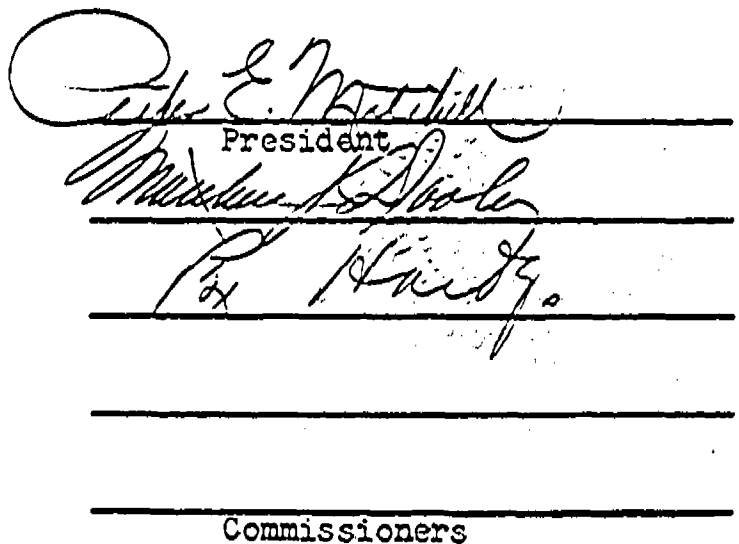 E. Mitchell
President
K.
Rex Hardy.
Commissioners